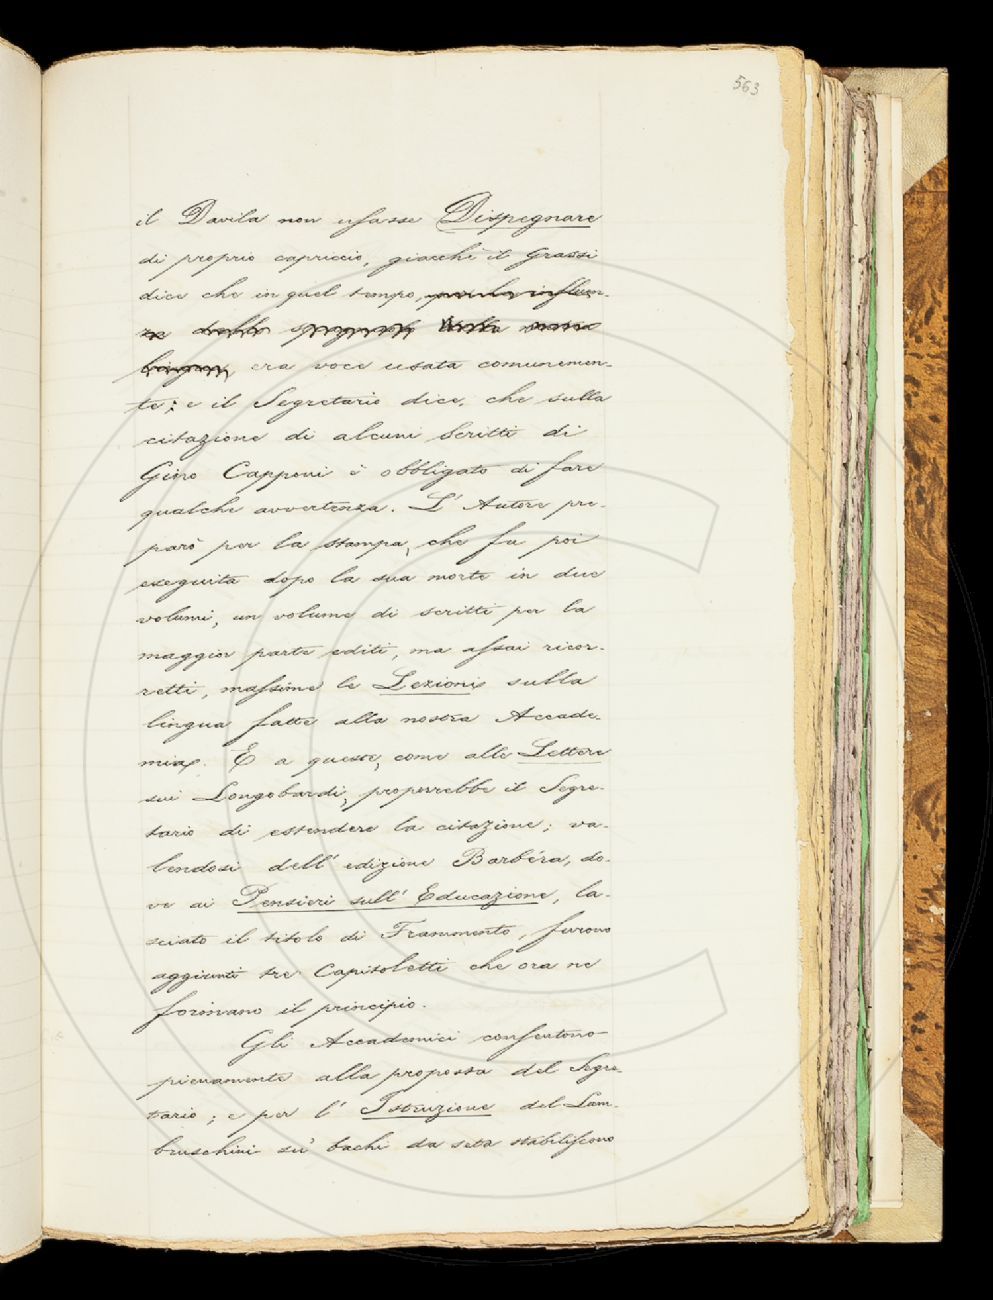 563
il Davila non usasse Dispegnare
di proprio capriccio, giacchè il Grassi
dice che in quel tempo, per la influen-
za della
lingua, era voce usata comunemen-
te; e il Segretario dice, che sulla
citazione di alcuni Scritti di
Gino Capponi è obbligato di fare
qualche avvertenza. L' Autore pre-
parò per la stampa, che fu poi
eseguita dopo la sua morte in due
volumi, un volume di scritti per la
maggior parte editi, ma assai ricor-
retti, massime le Lezioni sulla
lingua fatte alla nostra Accade-
mia. E a queste, come alle Lettere
sui Longobardi, proporrebbe il Segre-
tario di estendere la citazione; va-
lendosi dell' edizione Barbéra, do-
ve ai Pensieri sull' Educazione, la-
sciato il titolo di Frammento, furono
aggiunti tre Capitoletti che ora ne
formano il principio.
Gli Accademici consentono
pienamente alla proposta del Segre-
tario; e per l' Istruzione del Lam-
bruschini su' bachi da seta stabiliscono